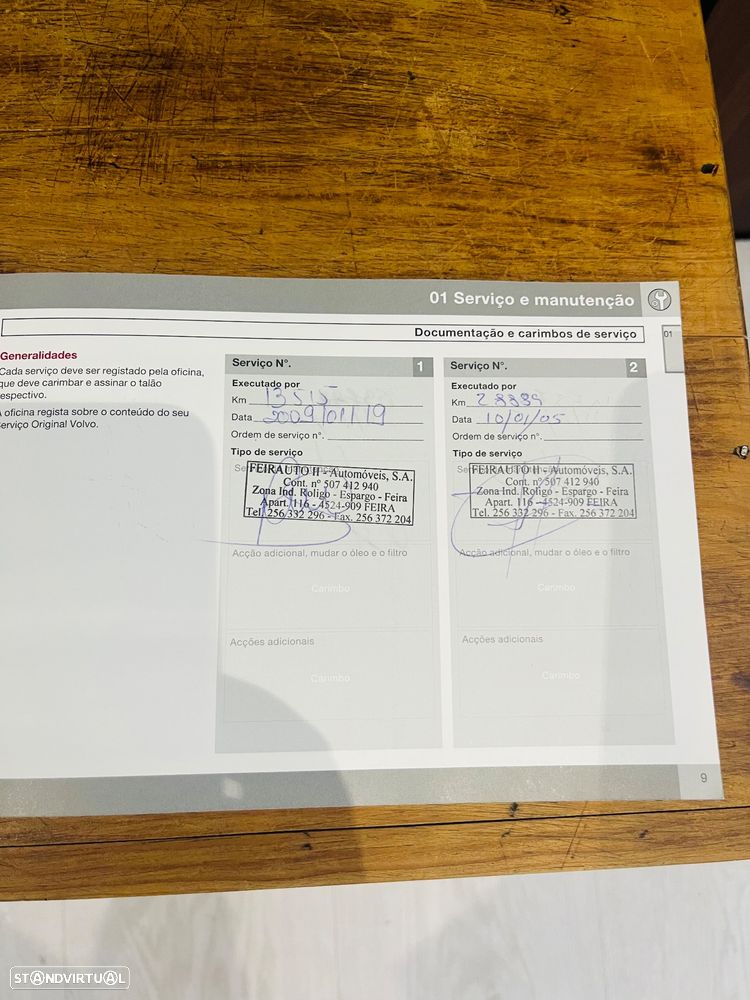 01 Serviço e manutenção
Documentação e carimbos de serviço
01
Generalidades
Cada serviço deve ser registado pela oficina,
que deve carimbar e assinar o talão
respectivo.
A oficina regista sobre o conteúdo do seu
Serviço Original Volvo.
Serviço N°. 1
Executado por
Km 13515
Data 2009/01/19
Ordem de serviço n°.
Tipo de serviço
FEIRAUTO II - Automóveis, S.A.
Cont. nº 507 412 940
Zona Ind. Roligo - Espargo - Feira
Apart. 116 - 4524-909 FEIRA
Tel. 256 332 296 - Fax. 256 372 204
Acção adicional, mudar o óleo e o filtro
Carimbo
Acções adicionais
Carimbo
Serviço N°. 2
Executado por
Km
Data 10/01/05
Ordem de serviço n°.
Tipo de serviço
FEIRAUTO II - Automóveis, S.A.
Cont. nº 507 412 940
Zona Ind. Roligo - Espargo - Feira
Apart. 116 - 4524-909 FEIRA
Tel. 256 332 296 - Fax. 256 372 204
Acção adicional, mudar o óleo e o filtro
Carimbo
Acções adicionais
Carimbo
9
STANDVIRTUAL